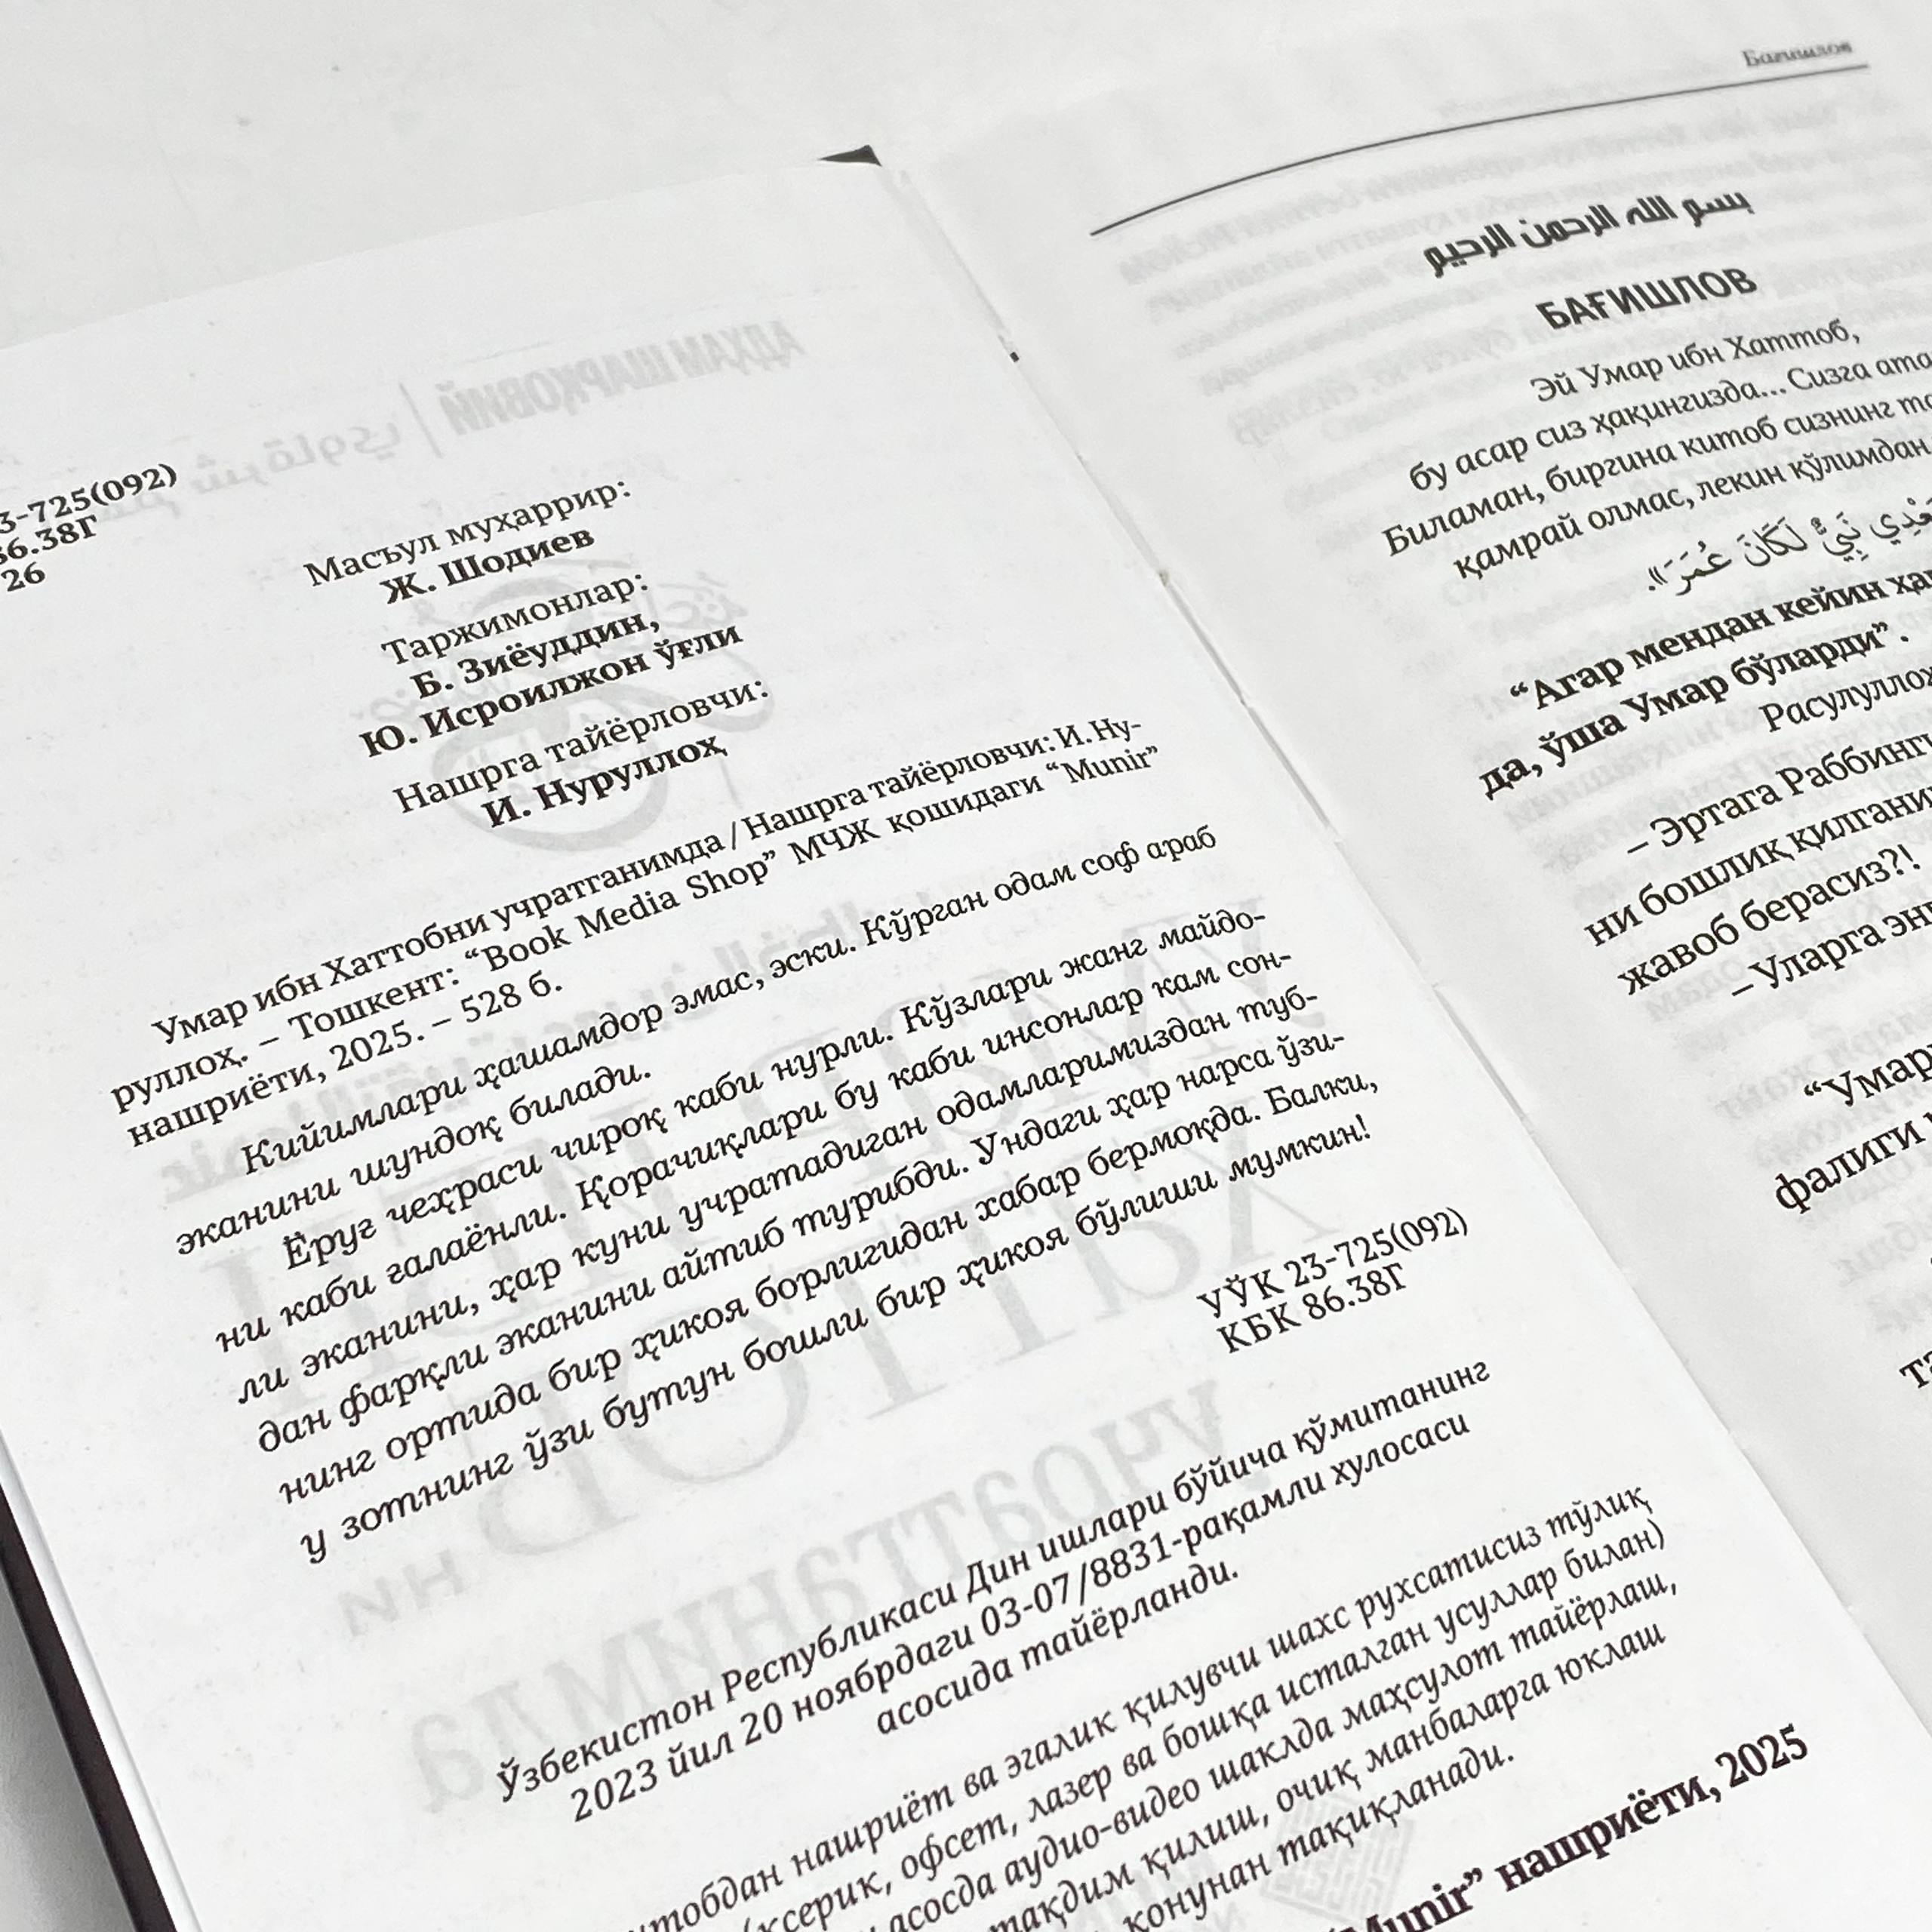 3-725(092)
86.38Г
26
Масъул муҳаррир:
Ж. Шодиев
Таржимонлар:
Б. Зиёуддин,
Ю. Исроилжон ўғли
Нашрга тайёрловчи:
И. Нуруллоҳ
Умар ибн Хаттобни учратганимда / Нашрга тайёрловчи: И. Ну-
руллоҳ. – Тошкент: “Book Media Shop” МЧЖ қошидаги “Munir”
нашриёти, 2025. – 528 б.
Кийимлари ҳашамдор эмас, эски. Кўрган одам соф араб
эканини шундоқ билади.
Ёруғ чеҳраси чироқ каби нурли. Кўзлари жанг майдо-
ни каби ғалаёнли. Қорачиқлари бу каби инсонлар кам сон-
ли эканини, ҳар куни учратадиган одамларимиздан туб-
дан фарқли эканини айтиб турибди. Ундаги ҳар нарса ўзи-
нинг ортида бир ҳикоя борлигидан хабар бермоқда. Балки,
у зотнинг ўзи бутун бошли бир ҳикоя бўлиши мумкин!
УЎК 23-725(092)
КБК 86.38Г
Ўзбекистон Республикаси Дин ишлари бўйича қўмитанинг
2023 йил 20 ноябрдаги 03-07/8831-рақамли хулосаси
асосида тайёрланди.
нашриёт ва эгалик қилувчи шахс рухсатисиз тўлиқ
офсет, лазер ва бошқа исталган усуллар билан)
асосда аудио-видео шаклда маҳсулот тайёрлаш,
тақдим қилиш, очиқ манбаларга юклаш
қонунан тақиқланади.
“Munir” нашриёти, 2025
Бағишлов
بسم الله الرحمن الرحيم
БАҒИШЛОВ
Эй Умар ибн Хаттоб,
бу асар сиз ҳақингизда... Сизга
Биламан, биргина китоб сизнинг
қамрай олмас, лекин қўлимдан
نَبِيٌّ لَكَانَ عُمَرَ».
“Агар мендан кейин
да, ўша Умар бўларди” .
– Эртага
ни бошлиқ
жавоб берасиз?!
– Уларга